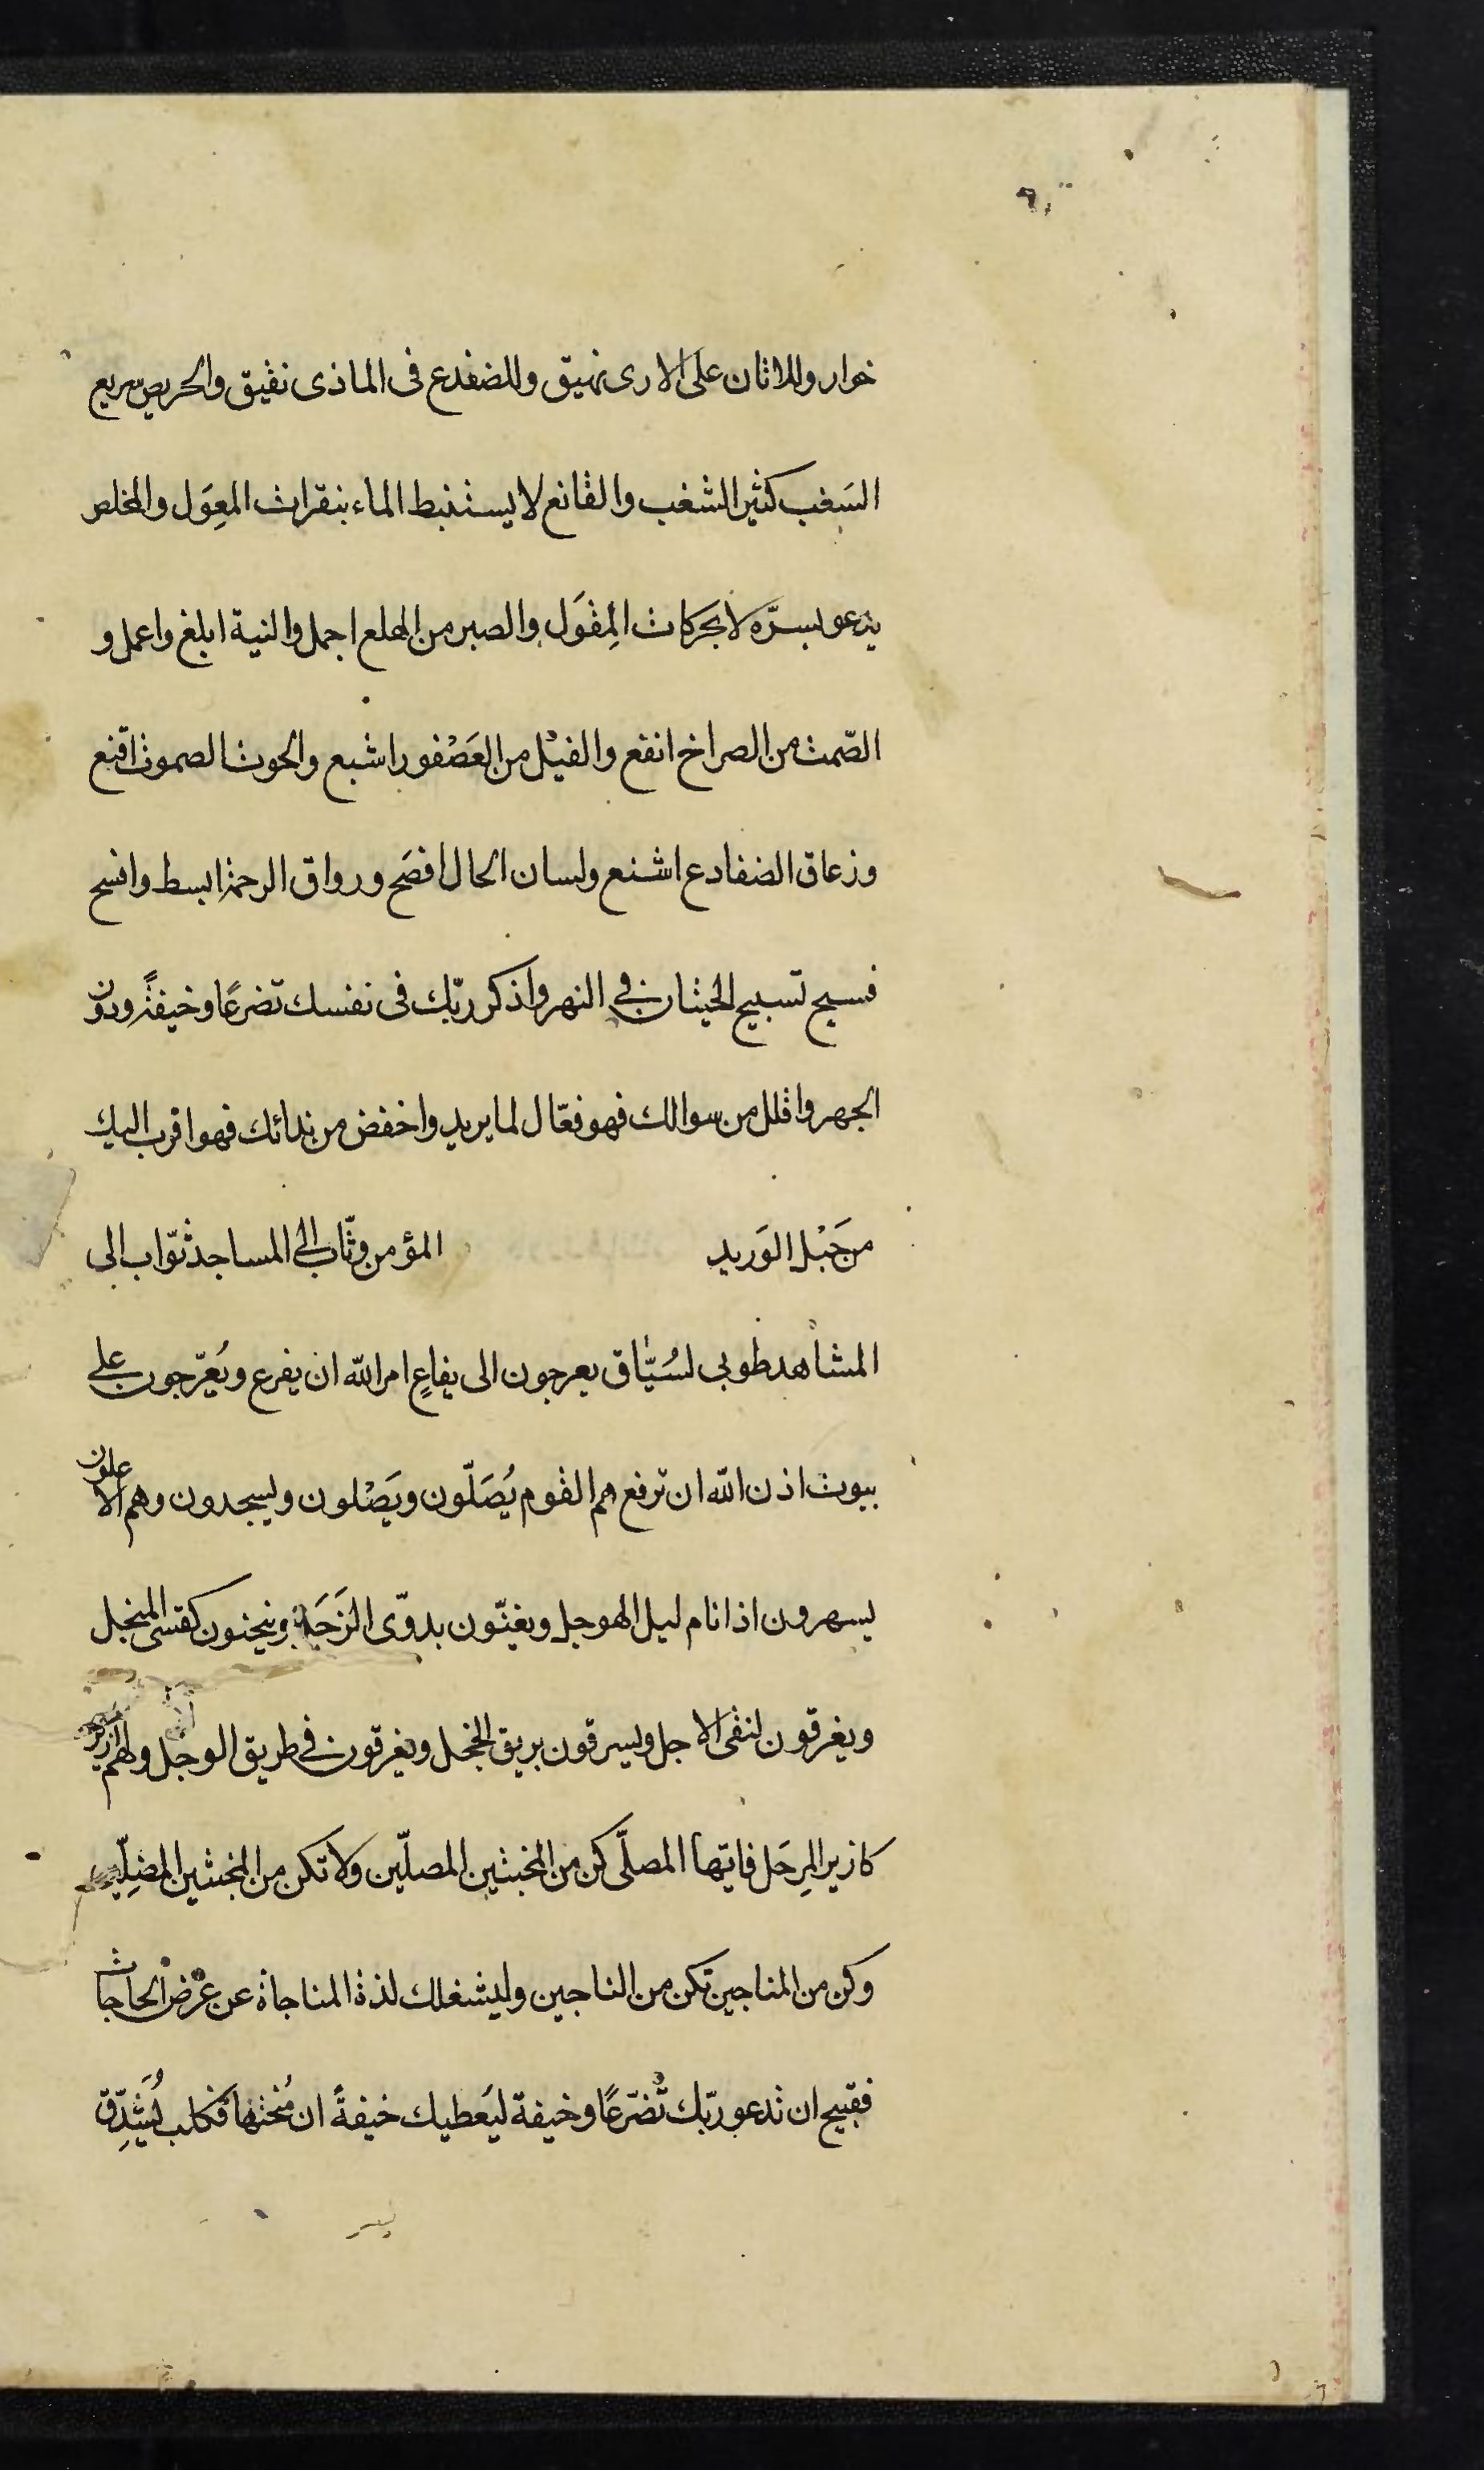 خوار وللاتان على الارى نهيق وللضفدع فى الماذى نقيق والحريص سريع
السَغب كثير الشغب والقانع لا يستنبط الماء بنقرات المعِوَل والمخلص
يدعو بسرّه لا بحركات المِقوَل والصبر من الهلع اجمل والنية ابلغ واعمل و
الصّمت من الصراخ انفع والفيْل من العَصْفور اشبع والحوت الصموت اقنع
وزعاق الضفادع اشنع ولسان الحال افصَح ورواق الرحمة ابسط وافسح
فسبح تسبيح الحيتان فى النهر واذكر ربّك فى نفسك تضرعًا وخيفةً ودون
الجهر واقلل من سوالك فهو فعّال لما يريد واخفض من ندائك فهو اقرب اليك
من حَبْل الوَريد المؤمن وثّاب الى المساجد ثوّاب الى
المشاهد طوبى لسُبّاق يعرجون الى يفاعٍ امر الله ان يفرع ويُعرّجون على
بيوت اذن الله ان ترفع هم القوم يُصَلّون ويَصْلون ويسجدون وهم الاعلون
يسهرون اذا نام ليل الهوجل ويغنّون بدوّى الزَجَل وينحنون كقسى المنجل
ويغرقون لنفى الاجل ويسرقون بريق الخجل ويغرقون فى طريق الوجل ولهم ازيز
كازيز المِرجَل فايّها المصلّى كن من المخبتين المصلّين ولا تكن من المخبتين المضلّين
وكن من المناجين تكن من الناجين وليشغلك لذة المناجاة عن عَرْض الحاجات
فقبيح ان تدعو ربّك تضرّعًا وخيفة ليَعطيك خيفةً ان مُنحتها فكلب يُشَدِّق